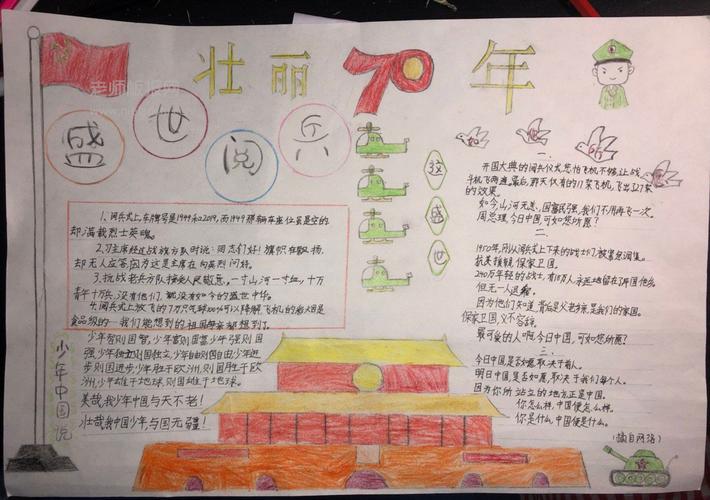 壮丽70年
盛世阅兵
这盛世
如你所愿
1、阅兵式上,车牌号是1949和2019,而1949那辆车座位虽是空的
却满载烈士英魂。
2、习主席经过战旗方队时说:同志们好!旗帜在飘扬,
却无人应答,因为这是主席在向英烈问好。
3、抗战老兵方队接受人民敬意,一寸山河一寸血,十万
青年十万兵,没有他们,就没有如今的盛世中华。
4、阅兵式上放飞的7万只气球100%可以降解
食品级的——我们能想到的祖国母亲都想到了。
少年中国说
少年智则国智,少年富则国富,少年强则国
强,少年独立则国独立,少年自由则国自由,少年进
步则国进步,少年胜于欧洲,则国胜于欧
洲,少年雄于地球,则国雄于地球。
美哉我少年中国与天不老!
壮哉我中国少年与国无疆!
一、
开国大典的阅兵仪式,您怕飞机不够,让战
斗机飞两遍,最后,昨天仅有的17架飞机,飞出了27架
的效果。
如今,山河无恙,国富民强,我们不用再飞一次。
周总理,今日中国,可如您所愿?
二、
1950年,刚从阅兵式上下来的战士们,被紧急调集。
抗美援朝,保家卫国。
240万年轻的战士,有18万永远地留在了异国他乡
但无一人退缩。
因为他们知道,背后是父老乡亲,是我们的家国。
保家卫国,义不容辞。
最可爱的人啊,今日中国,可如您所愿?
三、
今日中国是否如愿,取决于前人。
明日中国,是否如愿,取决于我们每个人。
因为你所站立的地方正是中国。
你怎么样,中国便怎么样。
你是什么,中国便是什么。
(摘自网络)